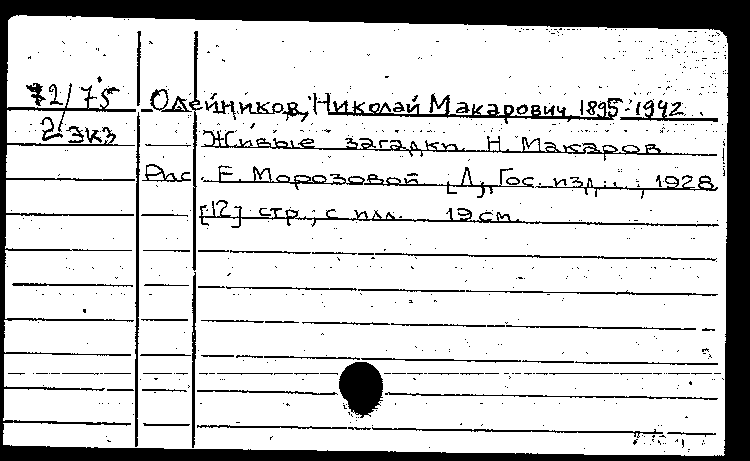 72/75 Олейников, Николай Макарович, 1895-1942.
2 экз Живые загадки. Н. Макаров
Рис. Е. Морозовой [Л], Гос. изд., 1928
[12] стр; с илл. 19 см.